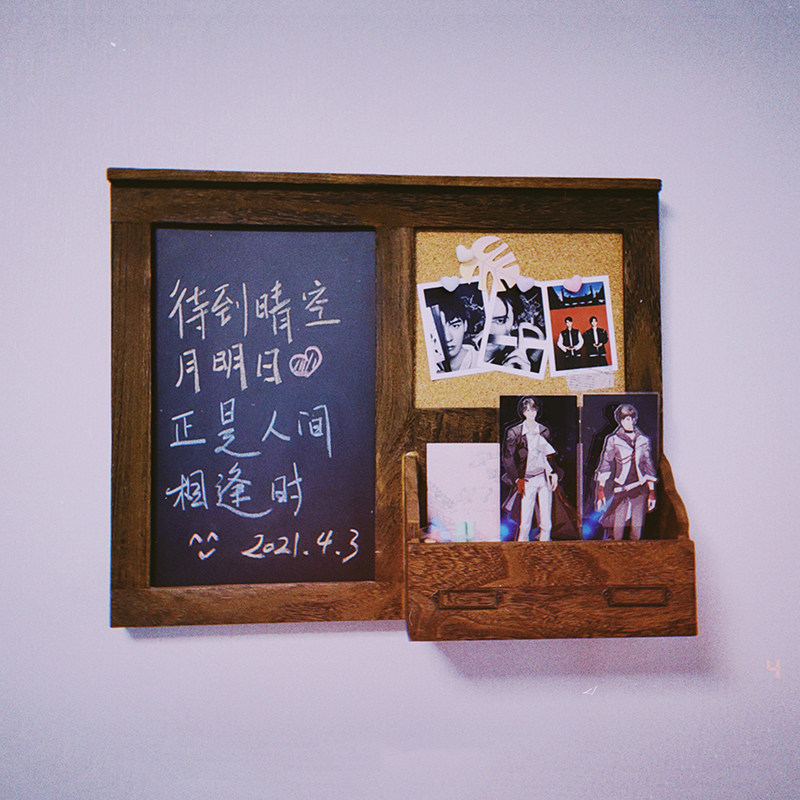 待到晴空
月明日
正是人间
相逢时
2021.4.3
4